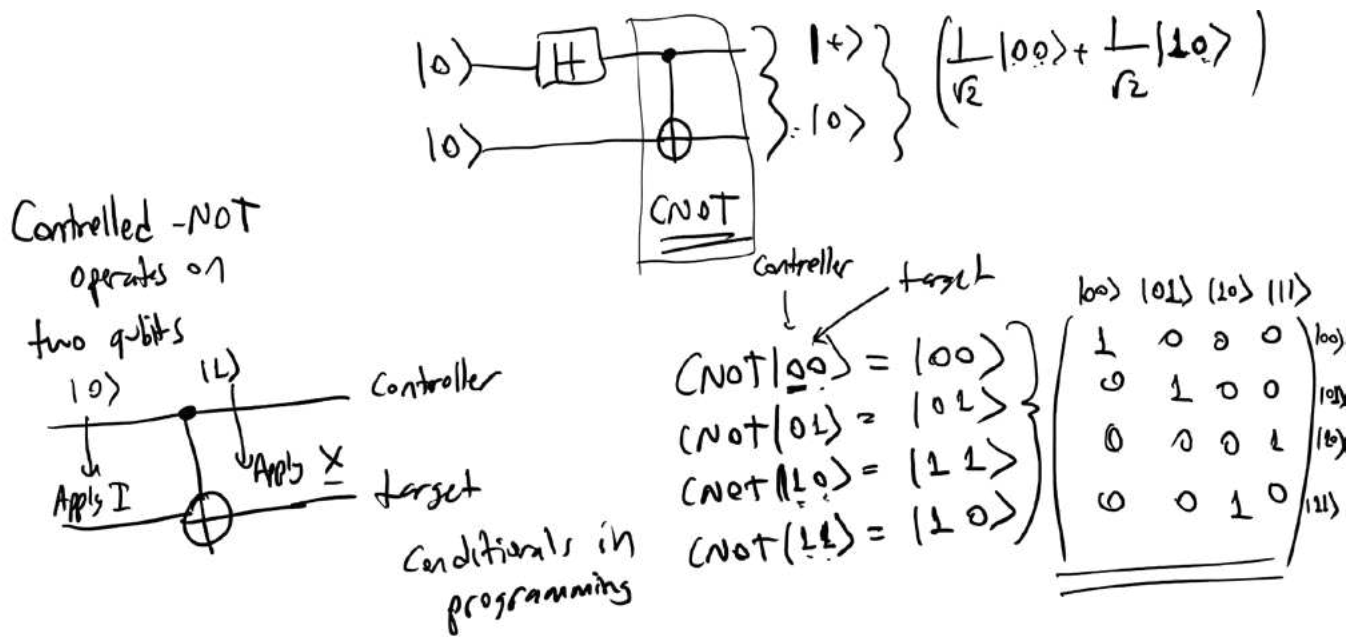 |0⟩ H } |+⟩ } (1/√2 |00⟩ + 1/√2 |10⟩)
|0⟩ |0⟩
CNOT
Controlled -NOT
operates on
two qubits
|0⟩ |1⟩
Controller
Apply I Apply X
target
Conditionals in
programming
Controller target
CNOT|00⟩ = |00⟩
CNOT|01⟩ = |01⟩
CNOT|10⟩ = |11⟩
CNOT|11⟩ = |10⟩
|00⟩ |01⟩ |10⟩ |11⟩
1 0 0 0 |00⟩
0 1 0 0 |01⟩
0 0 0 1 |10⟩
0 0 1 0 |11⟩